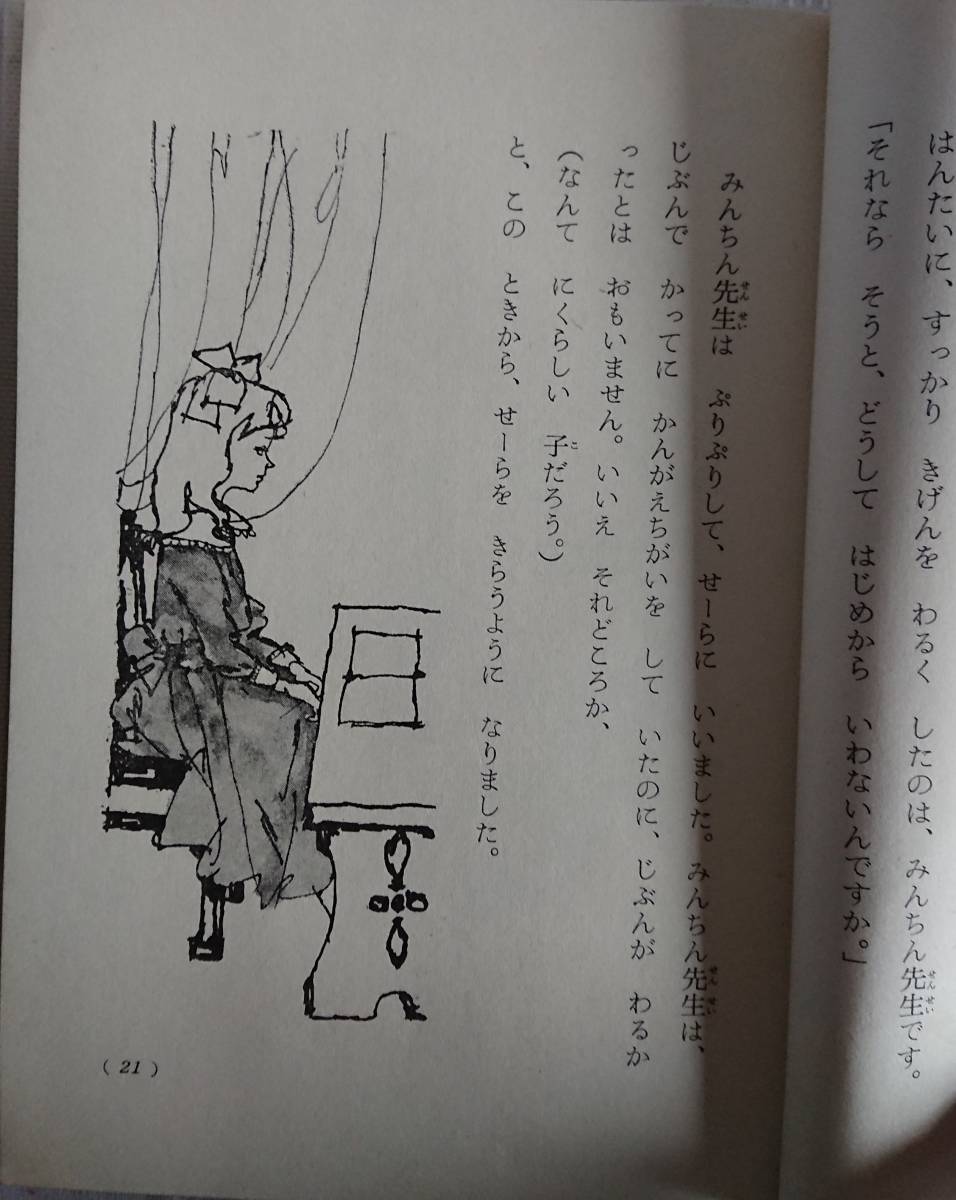 はんたいに、すっかり きげんを わるく したのは、みんちん先生です。
「それなら そうと、どうして はじめから いわないんですか。」
みんちん先生は ぷりぷりして、せーらに いいました。みんちん先生は、
じぶんで かってに かんがえちがいを して いたのに、じぶんが わるか
ったとは おもいません。いいえ それどころか、
(なんて にくらしい 子だろう。)
と、この ときから、せーらを きらうように なりました。
( 21 )